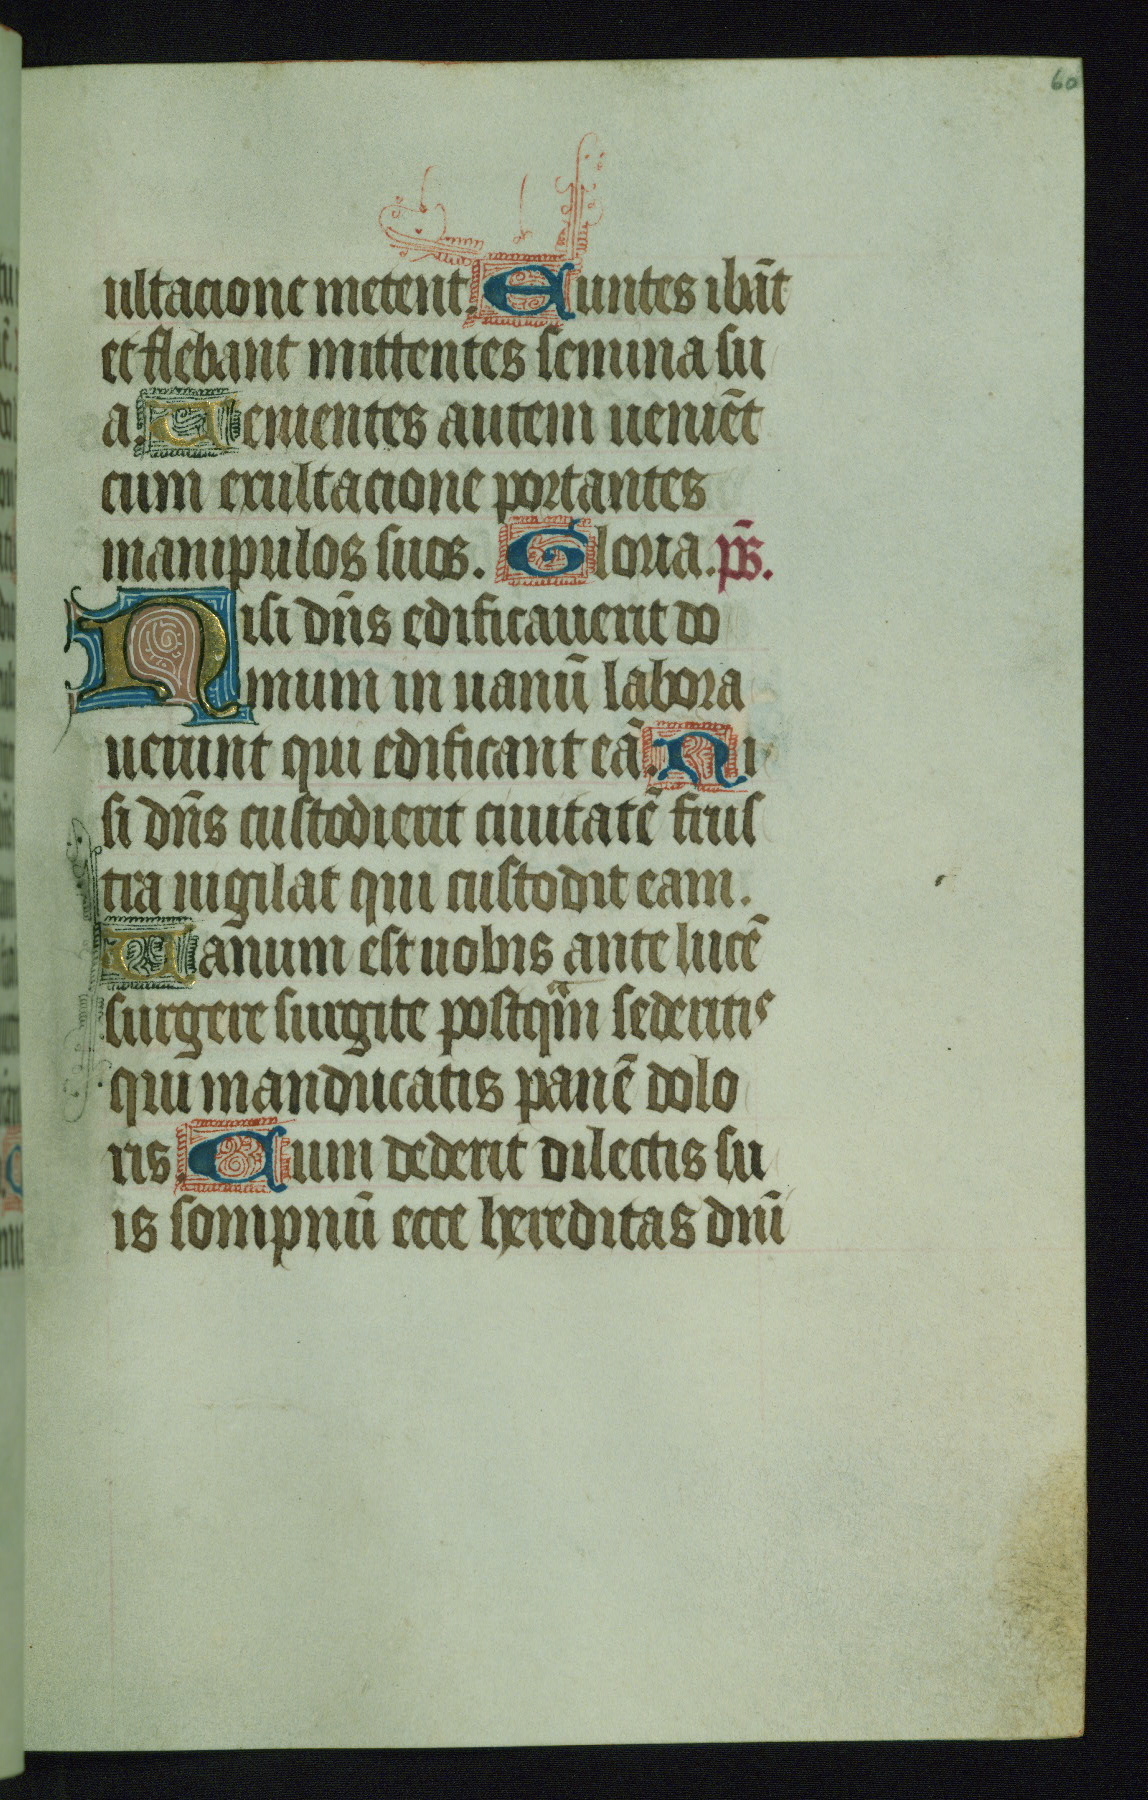 60
ultacione metent. Euntes ibāt
et flebant mittentes semina su
a. Uenientes autem ueniēt
cum exultacione portantes
manipulos suos. Gloria. ps̄.
Nisi dn̄s edificauerit do
mum in uanū labora
uerunt qui edificant eā. Ni
si dn̄s custodierit ciuitatē frus
tra uigilat qui custodit eam.
Uanum est uobis ante lucē
surgere surgite postq̄m sederitis
qui manducatis panē dolo
ris. Cum dederit dilectis su
is sompnū ecce hereditas dn̄i